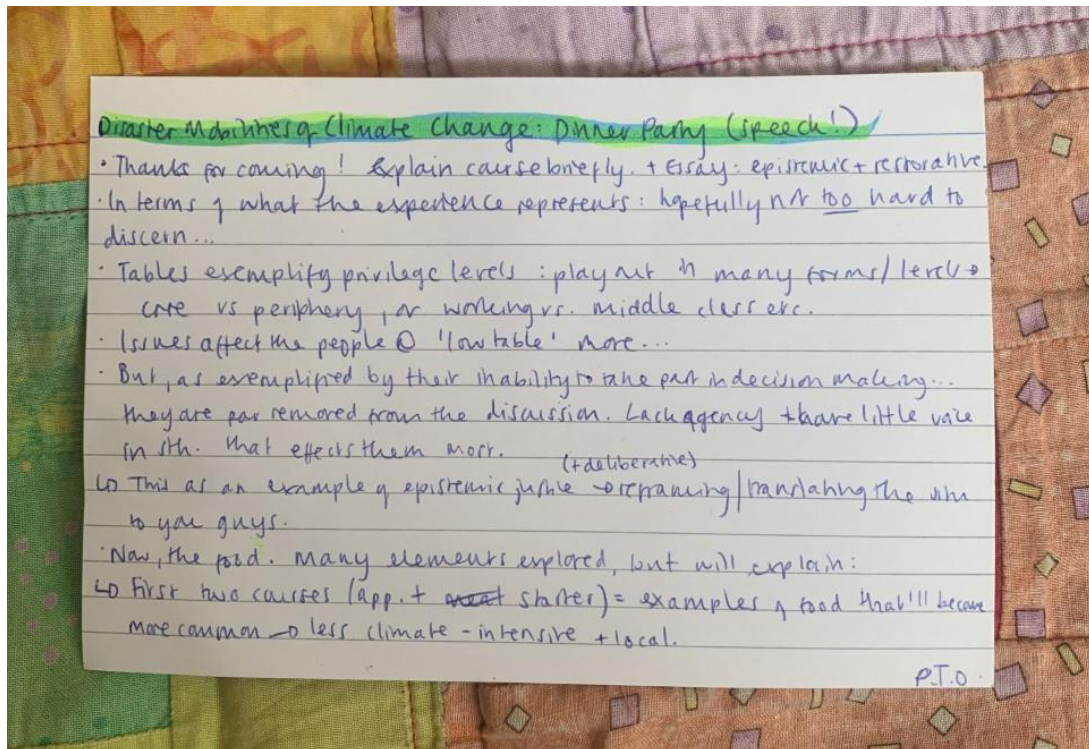 Disaster Mobilities of Climate Change: Dinner Party (speech!)
· Thanks for coming! Explain course briefly. + Essay: epistemic + restorative.
· In terms of what the experience represents: hopefully not too hard to
discern...
· Tables exemplify privilege levels: play out in many forms/levels →
core vs periphery, or working vs. middle class etc.
· Issues affect the people @ 'low table' more...
· But, as exemplified by their inability to take part in decision making...
they are far removed from the discussion. Lack agency + have little voice
in sth. that effects them most.
(+deliberative)
↳ This as an example of epistemic justice → reframing/translating the
to you guys.
· Now, the food. Many elements explored, but will explain:
↳ First two courses (app. + meat starter) = examples of food that'll become
more common → less climate-intensive + local.
P.T.O